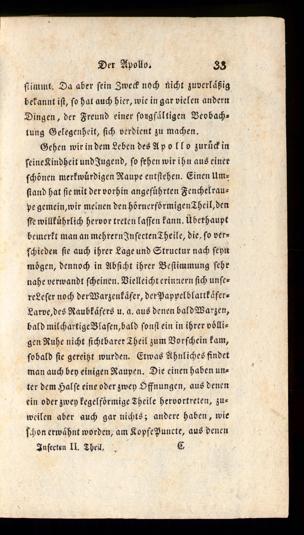 Der Apollo. 33
stimmt. Da aber sein Zweck noch nicht zuverläßig
bekannt ist, so hat auch hier, wie in gar vielen andern
Dingen, der Freund einer sorgfältigen Beobach-
tung Gelegenheit, sich verdient zu machen.
Gehen wir in dem Leben des Apollo zurück in
seine Kindheit und Jugend, so sehen wir ihn aus einer
schönen merkwürdigen Raupe entstehen. Einen Um-
stand hat sie mit der vorhin angeführten Fenchelrau-
pe gemein, wir meinen den hörnerförmigen Theil, den
sie willkührlich hervor treten lassen kann. Überhaupt
bemerkt man an mehrern Insecten Theile, die, so ver-
schieden sie auch ihrer Lage und Structur nach seyn
mögen, dennoch in Absicht ihrer Bestimmung sehr
nahe verwandt scheinen. Vielleicht erinnern sich unse-
re Leser noch der Warzenkäfer, der Pappelblattkäfer-
Larve, des Raubkäfers u. a. aus denen bald Warzen,
bald milchartige Blasen, bald sonst ein in ihrer völli-
gen Ruhe nicht sichtbarer Theil zum Vorschein kam,
sobald sie gereitzt wurden. Etwas Ähnliches findet
man auch bey einigen Raupen. Die einen haben un-
ter dem Halse eine oder zwey Öffnungen, aus denen
ein oder zwey kegelförmige Theile hervortreten, zu-
weilen aber auch gar nichts; andere haben, wie
schon erwähnt worden, am Kopfe Puncte, aus denen
Insecten II. Theil. C